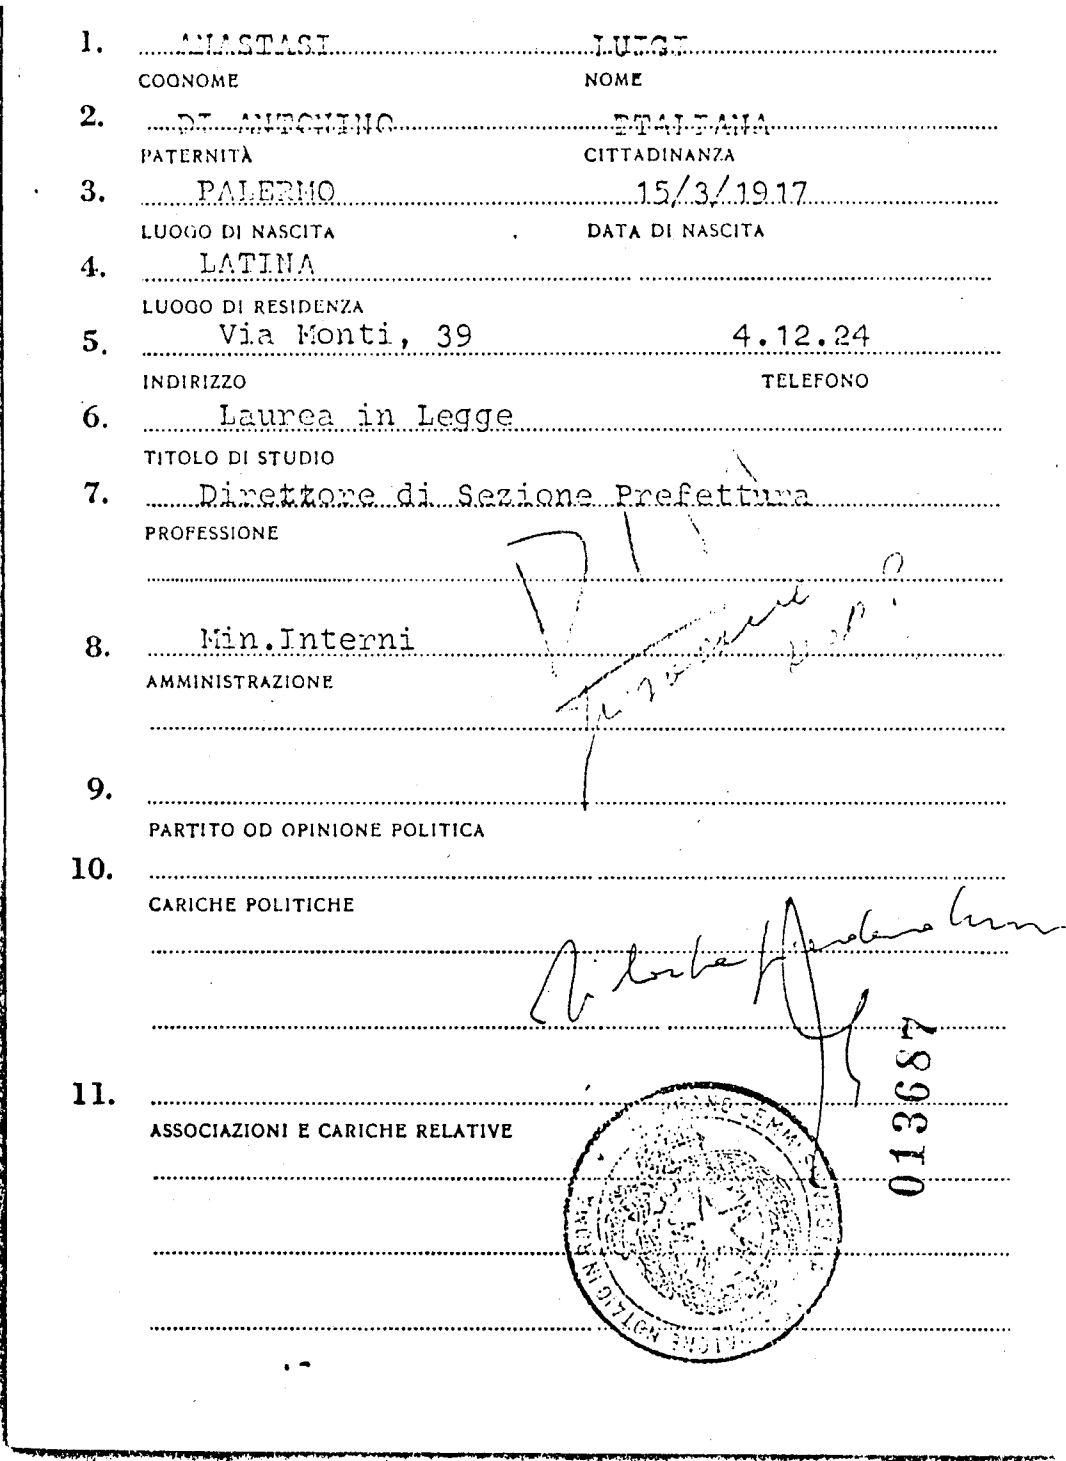 1. ANASTASI LUIGI
COGNOME NOME
2. DI ANTONINO ITALIANA
PATERNITÀ CITTADINANZA
3. PALERMO 15/3/1917
LUOGO DI NASCITA DATA DI NASCITA
4. LATINA
LUOGO DI RESIDENZA
5. Via Monti, 39 4.12.24
INDIRIZZO TELEFONO
6. Laurea in Legge
TITOLO DI STUDIO
7. Direttore di Sezione Prefettura
PROFESSIONE
8. Min.Interni
AMMINISTRAZIONE
9.
PARTITO OD OPINIONE POLITICA
10.
CARICHE POLITICHE
013687
11.
ASSOCIAZIONI E CARICHE RELATIVE